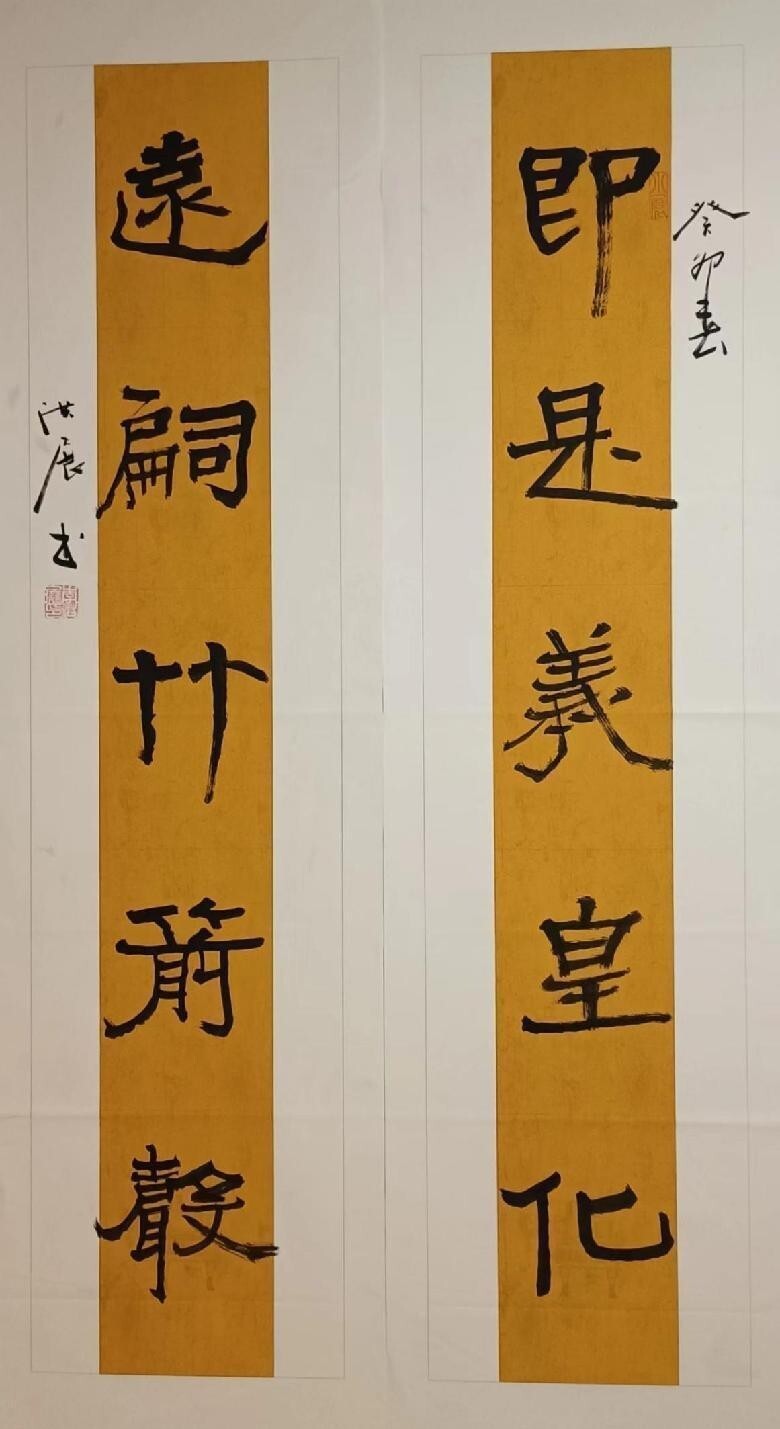 癸卯春
即是羲皇化
遠嗣竹箭聲
洪展书